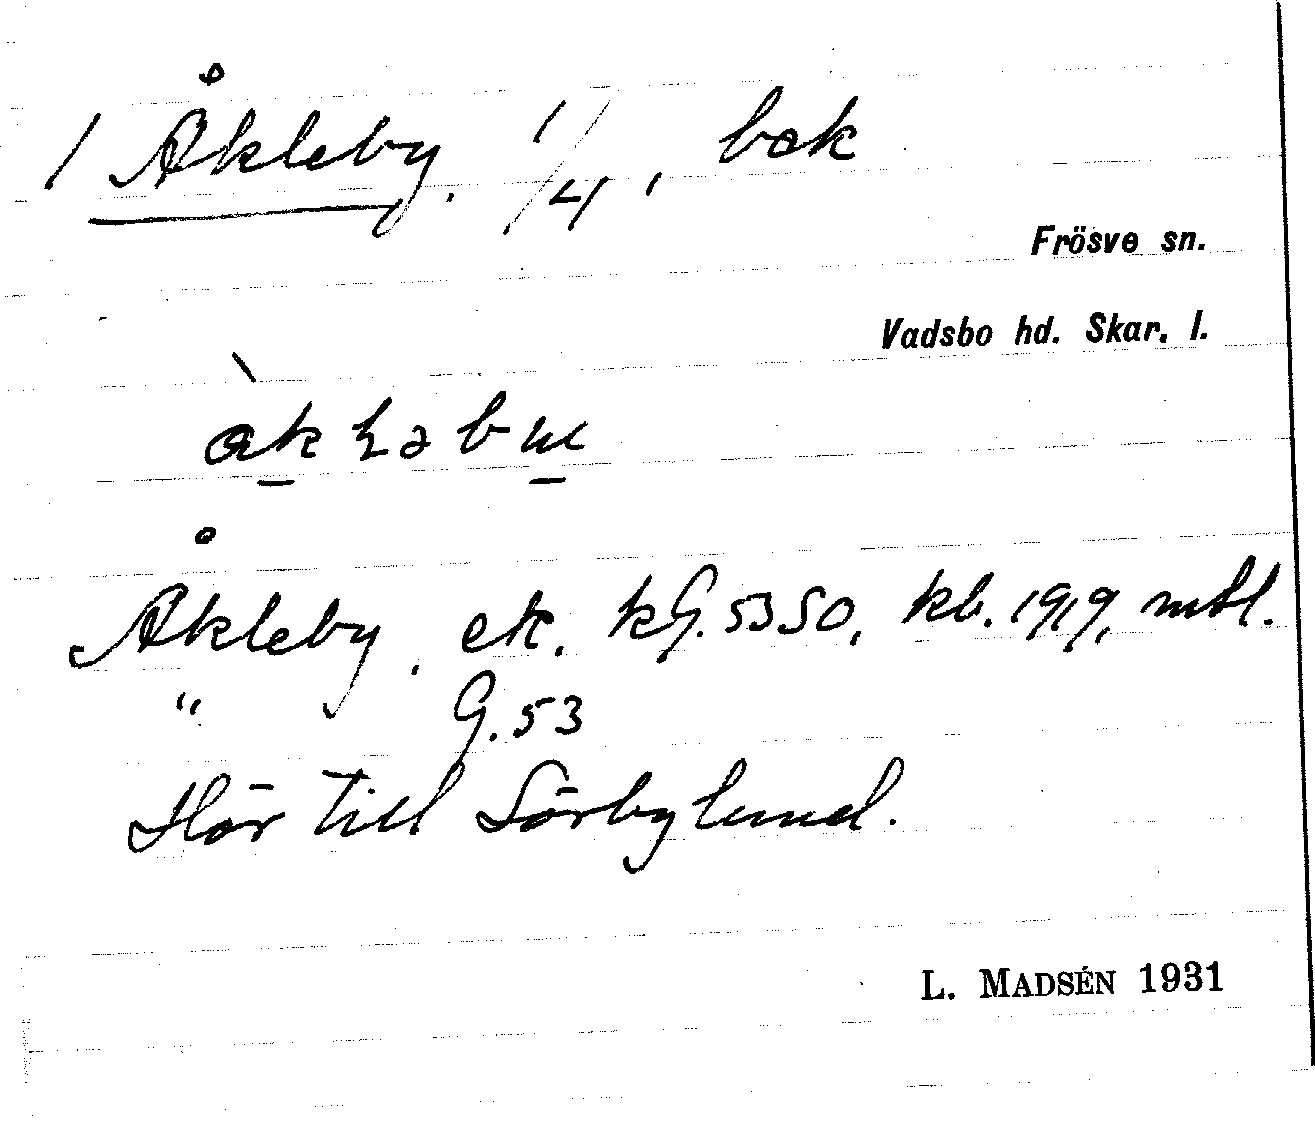 1 Åkleby. 1/4, bek
Frösve sn.
Vadsbo hd. Skar. l.
Åkleby, ek. kG. 5350, kb. 1919, mtl.
" G. 53
Hör till Sörbylund.
L. MADSÉN 1931